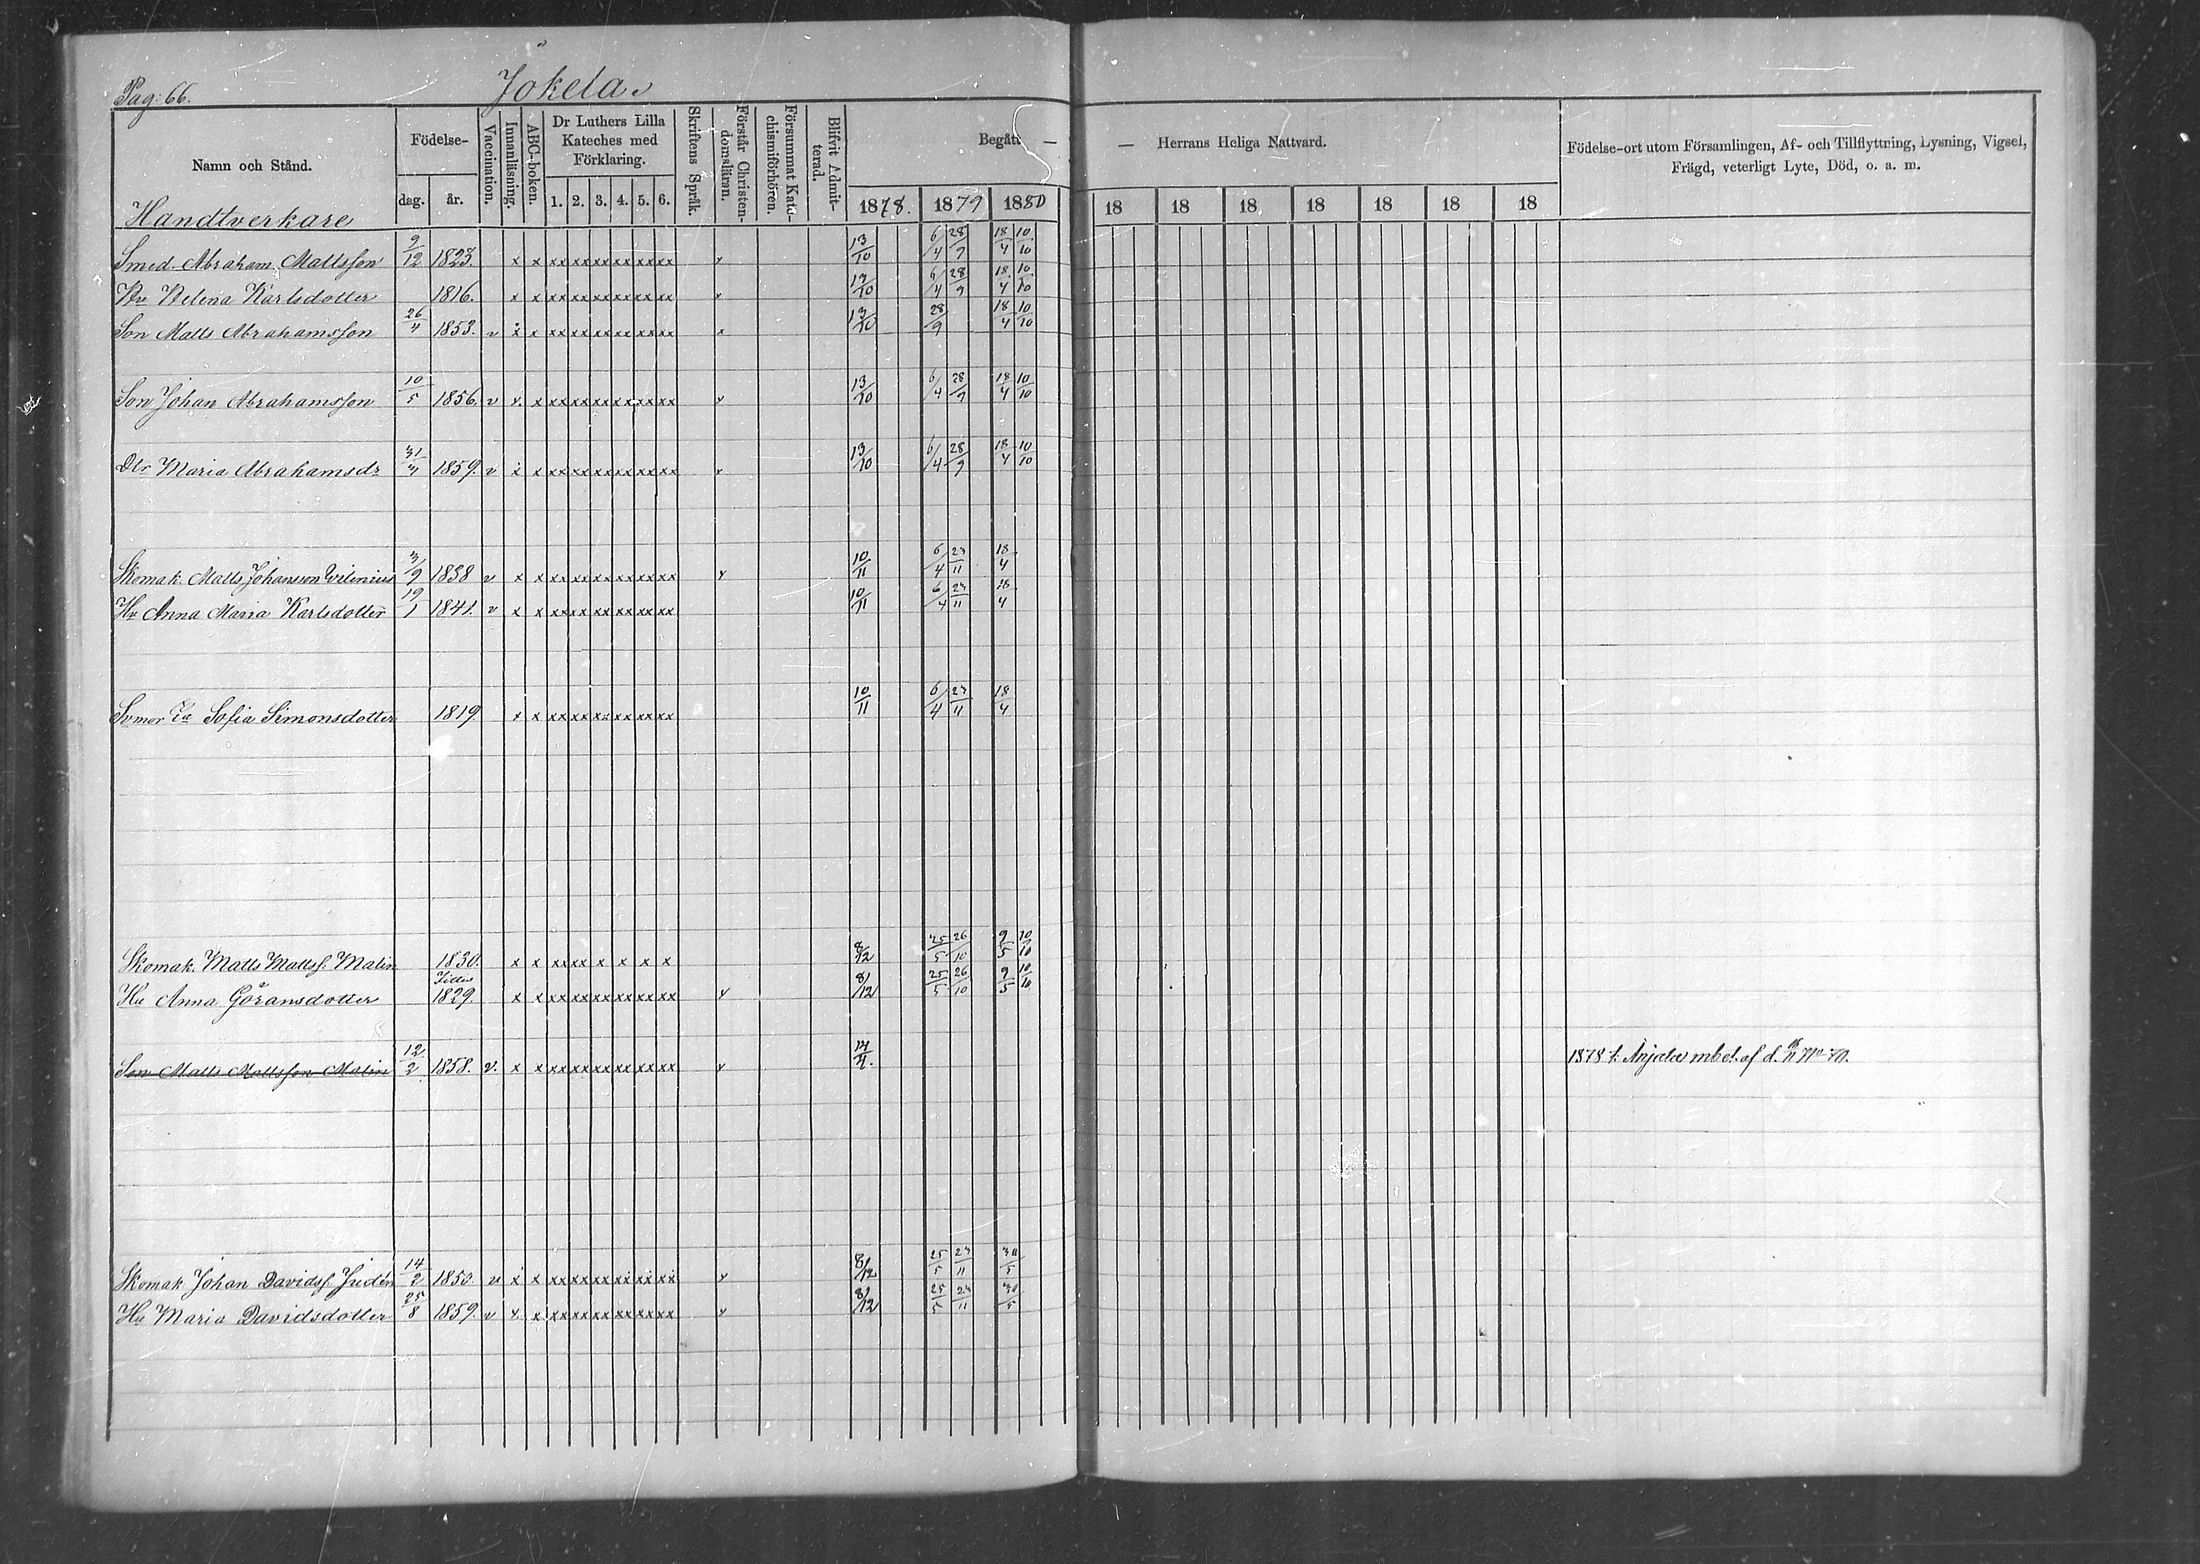 Pag: 66. Jokela.
Namn och Stånd. Födelse- dag. år. Vaccination. Innanläsning. ABC-boken. Dr Luthers Lilla Kateches med Förklaring. 1. 2. 3. 4. 5. 6. Skriftens Språk. Förstår Christendomsläran. Försummat Katechismiförhören. Blifvit Admitterad. Begått — — Herrans Heliga Nattvard. Födelse-ort utom Församlingen, Af- och Tillflyttning, Lysning, Vigsel, Frägd, veterligt Lyte, Död, o. a. m.
1878. 1879 1880 18 18 18 18 18 18 18
Handtverkare
Smed Abraham Mattsson 9/12 1823. x x xx xx xx xx xx xx v 13/10 6/4 28/9 18/4 10/10
Hu Helena Karlsdotter 1816. x x xx xx xx xx xx xx x 13/10 6/4 28/9 18/4 10/10
Son Matts Abrahamsson 26/4 1853. v x x xx xx xx xx xx xx x 13/10 28/9 18/4 10/10
Son Johan Abrahamsson 10/5 1856. v x x xx xx xx xx xx xx v 13/10 6/4 28/9 18/4 10/10
Dtr Maria Abrahamsdr 31/3 1859. v x x xx xx xx xx xx xx v 13/10 6/4 28/9 18/4 10/10
Skomak. Matts Johansson 3/9 1838 v x x xx xx xx xx xx xx v 10/11 6/4 23/11 18/4
Hu Anna Maria Karlsdotter 19/1 1841. v x x xx xx xx xx xx xx 10/11 6/4 23/11 18/4
Svmor Sofia Simonsdotter 1819 x x xx xx xx xx xx xx 10/11 6/4 23/11 18/4
Skomak. Matts Mattss. Malin 1830. x x xx xx x x x x 8/12 25/5 26/10 9/5 10/10
Hu Anna Göransdotter 1829. x x xx xx xx xx xx xx v 8/12 25/5 26/10 9/5 10/10
Son Matts Mattsson Malin 12/2 1858. v. x x xx xx xx xx xx xx v
1878 t. Anjala
Skomak Johan Davidss. 14/2 1850 v x x xx xx xx xx xx xx v 8/12 25/5 23/11 30/5
Hu Maria Davidsdotter 25/8 1859. v x x xx xx xx xx xx xx v 8/12 25/5 23/11 30/5